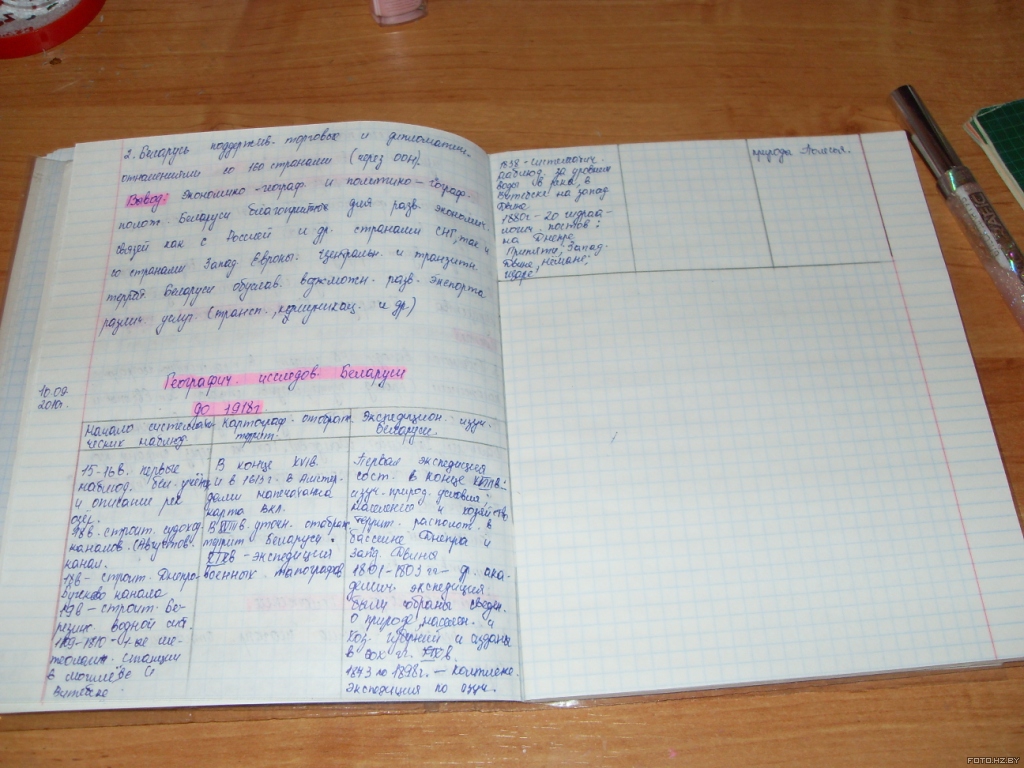 2. Беларусь поддержив. торговых и дипломатич.
отношениями со 160 странами (через ООН)
Вывод: Экономико-географ и политико-географ.
полож. Беларуси благоприятное для разв. экономич.
связей как с Россией и др. странами СНГ, так и
со странами Запад. Европы. Центральн. и транзитн.
террит. Беларуси обуслав. возможности разв. экспорта
различ. услуг. (трансп., коммуникац. и др.)
10.09.
2010г.
Географич. исследов. Беларуси
до 1918г
Начало система
ческих наблюд.
15-16в. первые
наблюд. был. учёт
и описание рек
озёр.
18в. строит. судоход
каналов. (Августов.
канал.
18в - строит. Днепро-
Бугского канала
19в - строит. Бе-
резин. водной сист.
1809-1810 - 1-ые ме-
теоролог. станции
в Могилёве и
Витебске.
Картограф. отображ.
террит.
В конце XVIв.
и в 1613г в Амстер-
даме напечатана
карта ВКЛ.
В XVIIIв. уточн. отображ.
террит Беларуси.
XIXв - экспедиция
военных топографов
Экспедицион. изуч.
Беларуси.
Первая экспедиция
сост. в конце XVIIIв.:
изуч. природ. условия;
население и хозяйство
террит. располож. в
бассейне Днепра и
Запд. Двины
1801-1803 гг - др. ака-
демич. экспедиция.
были собраны сведен.
о природе, населен. и
хоз. губерний и изданы
в 50х гг. XIXв.
1873 по 1898г. - комплекс.
экспедиция по изуч.
1838 - системат.
наблюд. за уровнем
воды в реке, в
Витебске на Запад.
Двине
1880г - 20 гидрол-
логич. постов:
на Днепре
Припяти, Запад.
Двине, Немане;
природа Полесья.
FOTO.HZ.BY